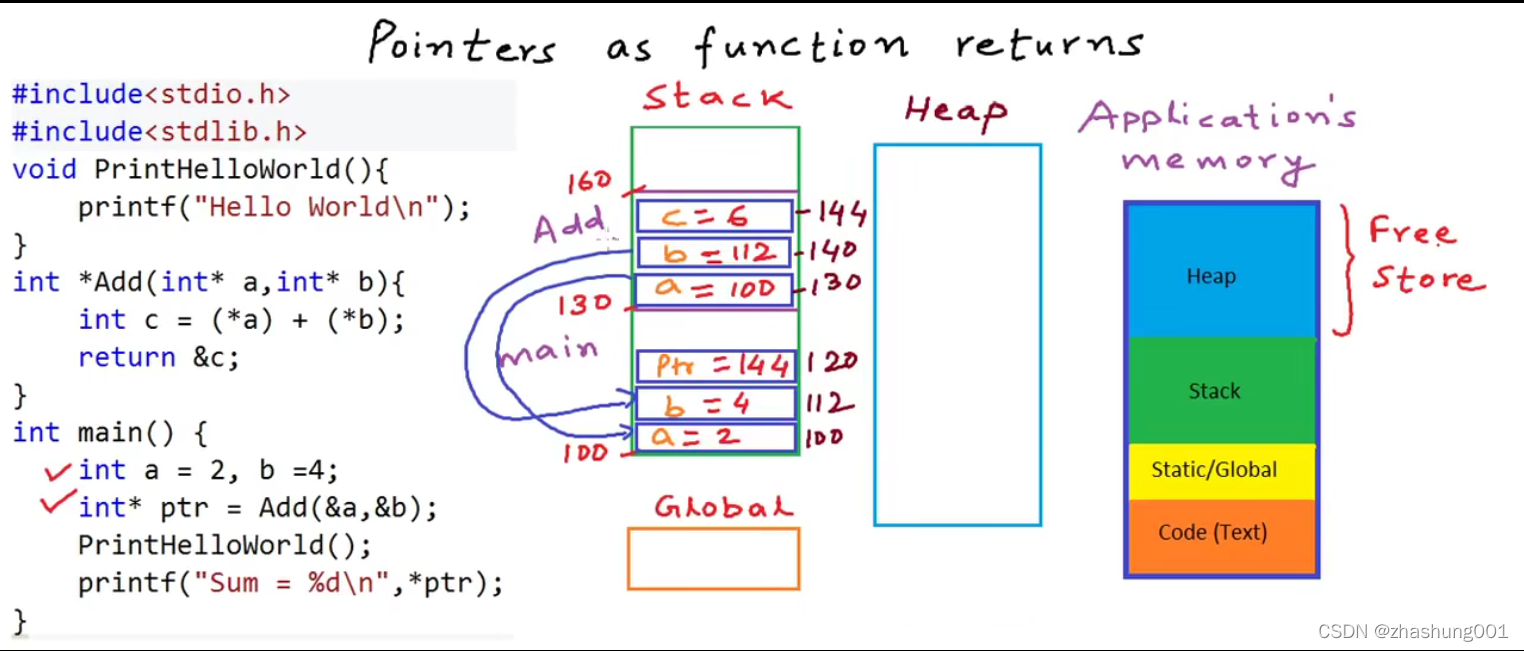 Pointers as function returns
#include<stdio.h>
#include<stdlib.h>
void PrintHelloWorld(){
    printf("Hello World\n");
}
int *Add(int* a,int* b){
    int c = (*a) + (*b);
    return &c;
}
int main() {
    int a = 2, b =4;
    int* ptr = Add(&a,&b);
    PrintHelloWorld();
    printf("Sum = %d\n",*ptr);
}
Stack
160
Add
c = 6 144
b = 112 140
a = 100 130
130
main
Ptr = 144 120
b = 4 112
a = 2 100
100
Global
Heap
Application's
memory
Heap
Stack
Static/Global
Code (Text)
Free
Store
CSDN @zhashung001